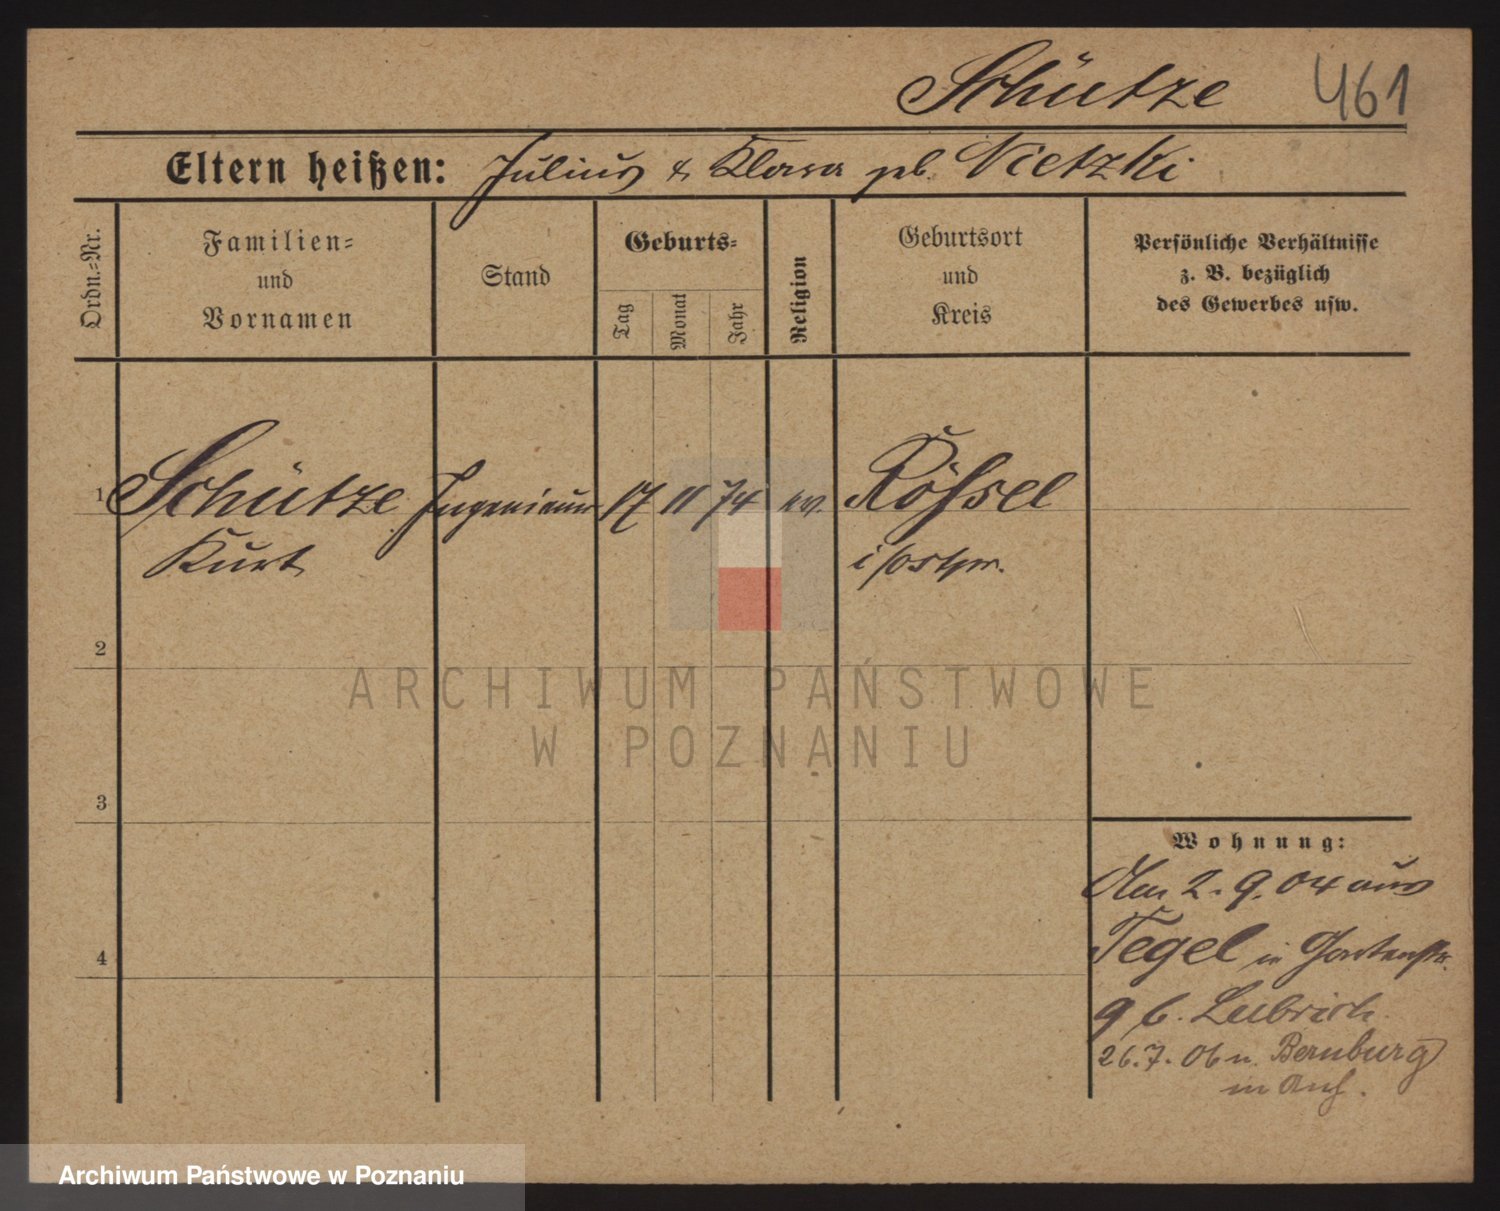 Schütze 461
Eltern heißen: Julius & Klara geb. Nietzki
Ordn.-Nr.
Familien- und Vornamen
Stand
Geburts-
Tag
Monat
Jahr
Religion
Geburtsort und Kreis
Persönliche Verhältnisse
z. B. bezüglich
des Gewerbes usw.
1 Schütze Ingenieur 17 11 74 ev. Rößel
Kurt i/Ostpr.
2
ARCHIWUM PAŃSTWOWE
W POZNANIU
3
4
Wohnung:
Am 2. 9. 04 aus
Tegel in Gartenstr.
9 b. Lubrich.
26.7. 06 n. Bernburg
in Anh.
Archiwum Państwowe w Poznaniu